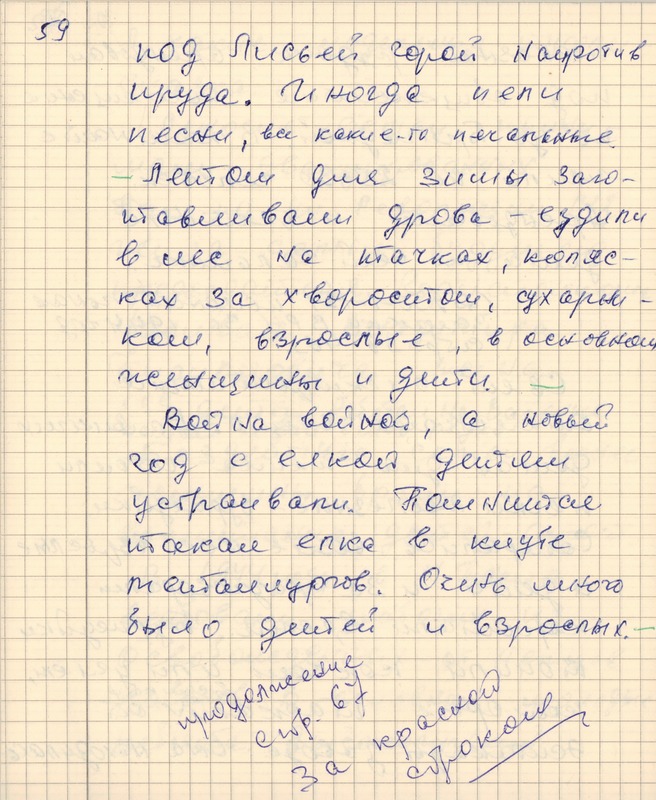 59
под Лисьей горой напротив
пруда. Иногда пели
песни, все какие-то печальные.
– Летом для зимы заго-
тавливали дрова – ездили
в лес на тачках, коляс-
ках за хворостом, сухарни-
ком, взрослые, в основном
женщины и дети. –
Война войной, а новый
год с елкой детям
устраивали. Помнится
такая елка в клубе
металлургов. Очень много
было детей и взрослых. –
продолжение
стр. 67
За красной
строкой